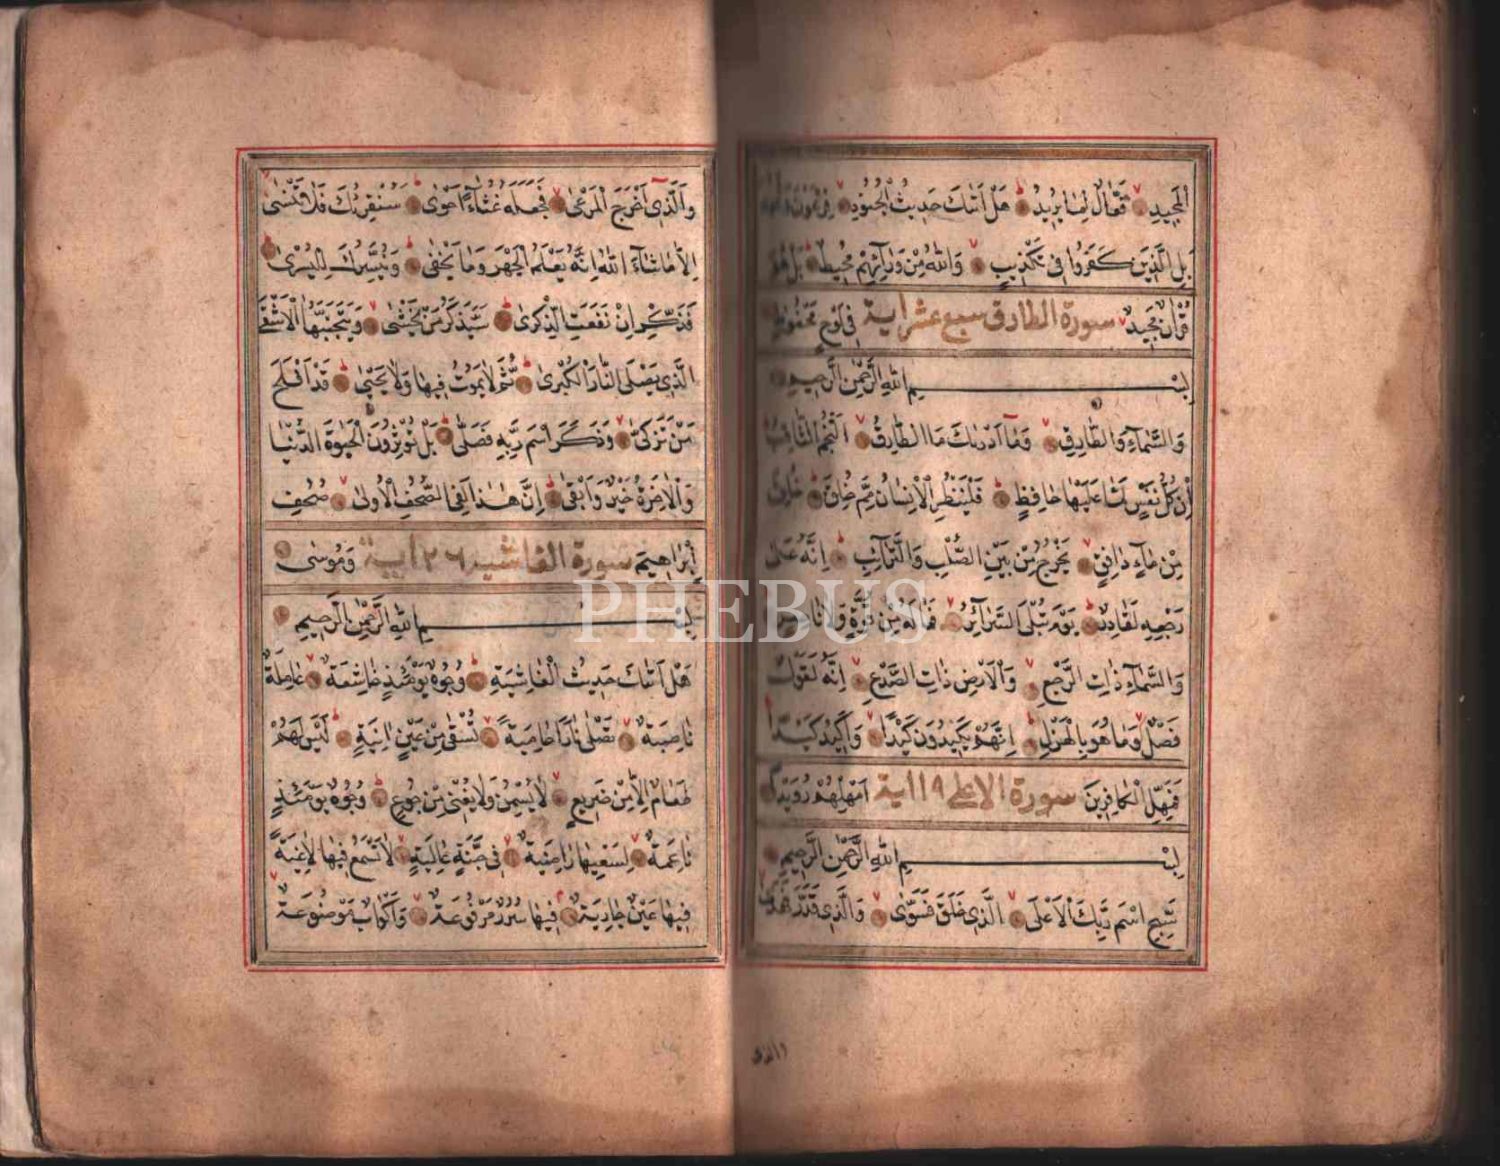 الْمَجِيدِ فَعَّالٌ لِمَا يُرِيدُ هَلْ اَتٰيكَ حَدِيثُ الْجُنُودِ فِرْعَوْنَ وَثَمُودَ
بَلِ الَّذِينَ كَفَرُوا فِى تَكْذِيبٍ وَاللّٰهُ مِنْ وَرَائِهِمْ مُحِيطٌ بَلْ هُوَ
قُرْاٰنٌ مَجِيدٌ سورة الطارق سبع عشر اية فِى لَوْحٍ مَحْفُوظٍ
بِسْمِ اللّٰهِ الرَّحْمٰنِ الرَّحِيمِ
وَالسَّمَاءِ وَالطَّارِقِ وَمَا اَدْرٰيكَ مَا الطَّارِقُ اَلنَّجْمُ الثَّاقِبُ
اِنْ كُلُّ نَفْسٍ لَمَّا عَلَيْهَا حَافِظٌ فَلْيَنْظُرِ الْاِنْسَانُ مِمَّ خُلِقَ خُلِقَ
مِنْ مَاءٍ دَافِقٍ يَخْرُجُ مِنْ بَيْنِ الصُّلْبِ وَالتَّرَائِبِ اِنَّهُ عَلٰى
رَجْعِهِ لَقَادِرٌ يَوْمَ تُبْلَى السَّرَائِرُ فَمَا لَهُ مِنْ قُوَّةٍ وَلَا نَاصِرٍ
وَالسَّمَاءِ ذَاتِ الرَّجْعِ وَالْاَرْضِ ذَاتِ الصَّدْعِ اِنَّهُ لَقَوْلٌ
فَصْلٌ وَمَا هُوَ بِالْهَزْلِ اِنَّهُمْ يَكِيدُونَ كَيْدًا وَاَكِيدُ كَيْدًا
فَمَهِّلِ الْكَافِرِينَ سورة الاعلى ١٩ اية اَمْهِلْهُمْ رُوَيْدًا
بِسْمِ اللّٰهِ الرَّحْمٰنِ الرَّحِيمِ
سَبِّحِ اسْمَ رَبِّكَ الْاَعْلَى اَلَّذِى خَلَقَ فَسَوّٰى وَالَّذِى قَدَّرَ فَهَدٰى
والذى
وَالَّذِى اَخْرَجَ الْمَرْعٰى فَجَعَلَهُ غُثَاءً اَحْوٰى سَنُقْرِئُكَ فَلَا تَنْسٰى
اِلَّا مَا شَاءَ اللّٰهُ اِنَّهُ يَعْلَمُ الْجَهْرَ وَمَا يَخْفٰى وَنُيَسِّرُكَ لِلْيُسْرٰى
فَذَكِّرْ اِنْ نَفَعَتِ الذِّكْرٰى سَيَذَّكَّرُ مَنْ يَخْشٰى وَيَتَجَنَّبُهَا الْاَشْقَى
الَّذِى يَصْلَى النَّارَ الْكُبْرٰى ثُمَّ لَا يَمُوتُ فِيهَا وَلَا يَحْيٰى قَدْ اَفْلَحَ
مَنْ تَزَكّٰى وَذَكَرَ اسْمَ رَبِّهِ فَصَلّٰى بَلْ تُؤْثِرُونَ الْحَيٰوةَ الدُّنْيَا
وَالْاٰخِرَةُ خَيْرٌ وَاَبْقٰى اِنَّ هٰذَا لَفِى الصُّحُفِ الْاُولٰى صُحُفِ
اِبْرَاهِيمَ سورة الغاشيه ٢٦ اية وَمُوسٰى
بِسْمِ اللّٰهِ الرَّحْمٰنِ الرَّحِيمِ
هَلْ اَتٰيكَ حَدِيثُ الْغَاشِيَةِ وُجُوهٌ يَوْمَئِذٍ خَاشِعَةٌ عَامِلَةٌ
نَاصِبَةٌ تَصْلٰى نَارًا حَامِيَةً تُسْقٰى مِنْ عَيْنٍ اٰنِيَةٍ لَيْسَ لَهُمْ
طَعَامٌ اِلَّا مِنْ ضَرِيعٍ لَا يُسْمِنُ وَلَا يُغْنِى مِنْ جُوعٍ وُجُوهٌ يَوْمَئِذٍ
نَاعِمَةٌ لِسَعْيِهَا رَاضِيَةٌ فِى جَنَّةٍ عَالِيَةٍ لَا تَسْمَعُ فِيهَا لَاغِيَةً
فِيهَا عَيْنٌ جَارِيَةٌ فِيهَا سُرُرٌ مَرْفُوعَةٌ وَاَكْوَابٌ مَوْضُوعَةٌ
PHEBUS